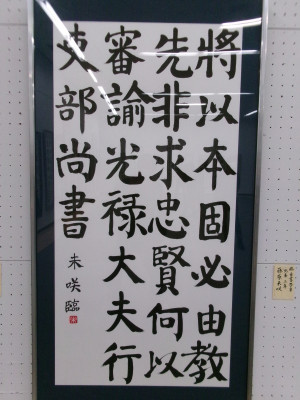 將以本固必由教
先非求忠賢何以
審諭光禄大夫行
吏部尚書
未咲臨